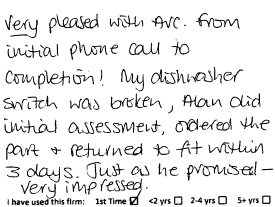 Very pleased with Avc. From
initial phone call to
completion! My dishwasher
switch was broken, Alan did
initial assessment, ordered the
part & returned to fit within
3 days. Just as he promised –
very impressed.
I have used this firm: 1st Time ☑ <2 yrs ☐ 2-4 yrs ☐ 5+ yrs ☐